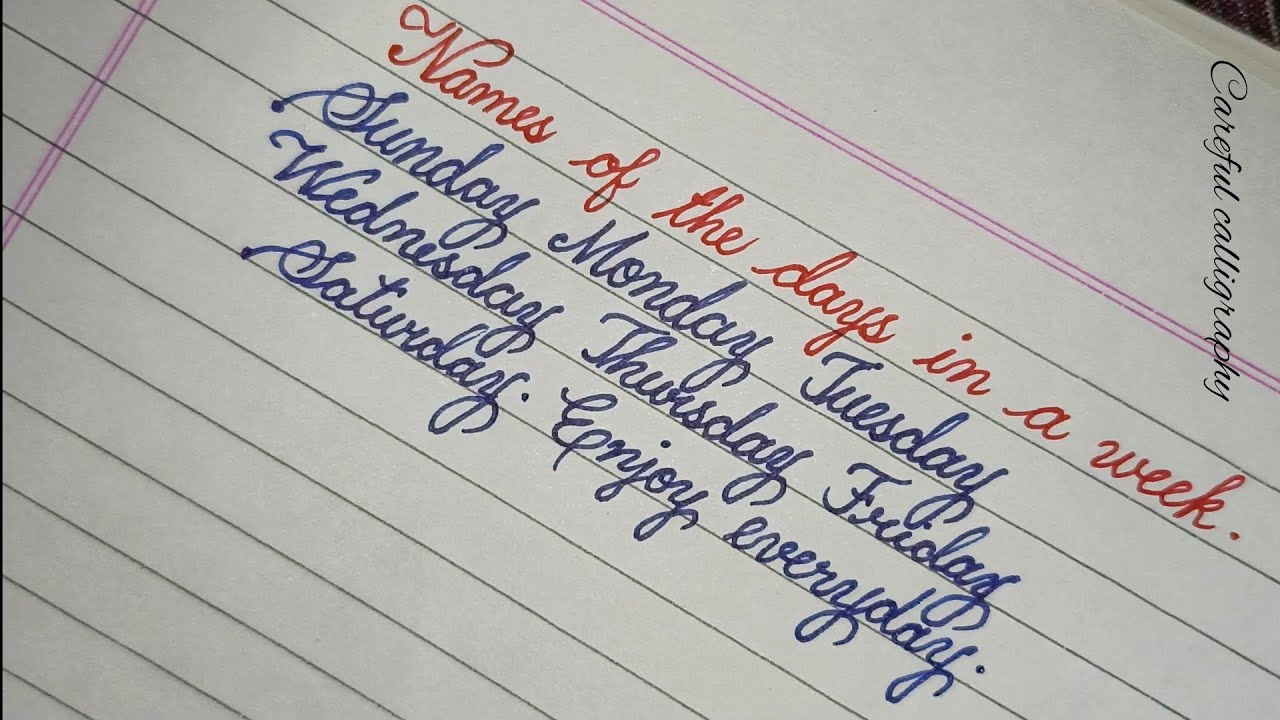 Names of the days in a week.
Sunday Monday Tuesday
Wednesday Thursday Friday
Saturday. Enjoy everyday.
Careful calligraphy